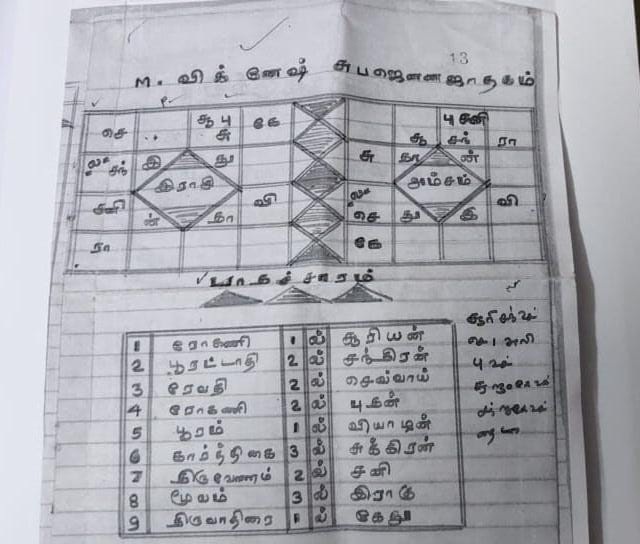 13
M. விக்னேஷ் சுபஜெனனஜாதகம்
செ ஆ பு சு கே பு சனி
ல சந் இ து சு ஆ சந் ரா
இராசி அம்சம்
சனி ன் வி ல செ து இ வி
ரா கே
பாதச்சாரம்
1 ரோகணி 1 ல் சூரியன்
2 பூரட்டாதி 2 ல் சந்திரன்
3 ரேவதி 2 ல் செவ்வாய்
4 ரோகணி 2 ல் புதன்
5 பூரம் 1 ல் வியாழன்
6 கார்த்திகை 3 ல் சுக்கிரன்
7 திருவோணம் 2 ல் சனி
8 மூலம் 3 ல் இராகு
9 திருவாதிரை 1 ல் கேது